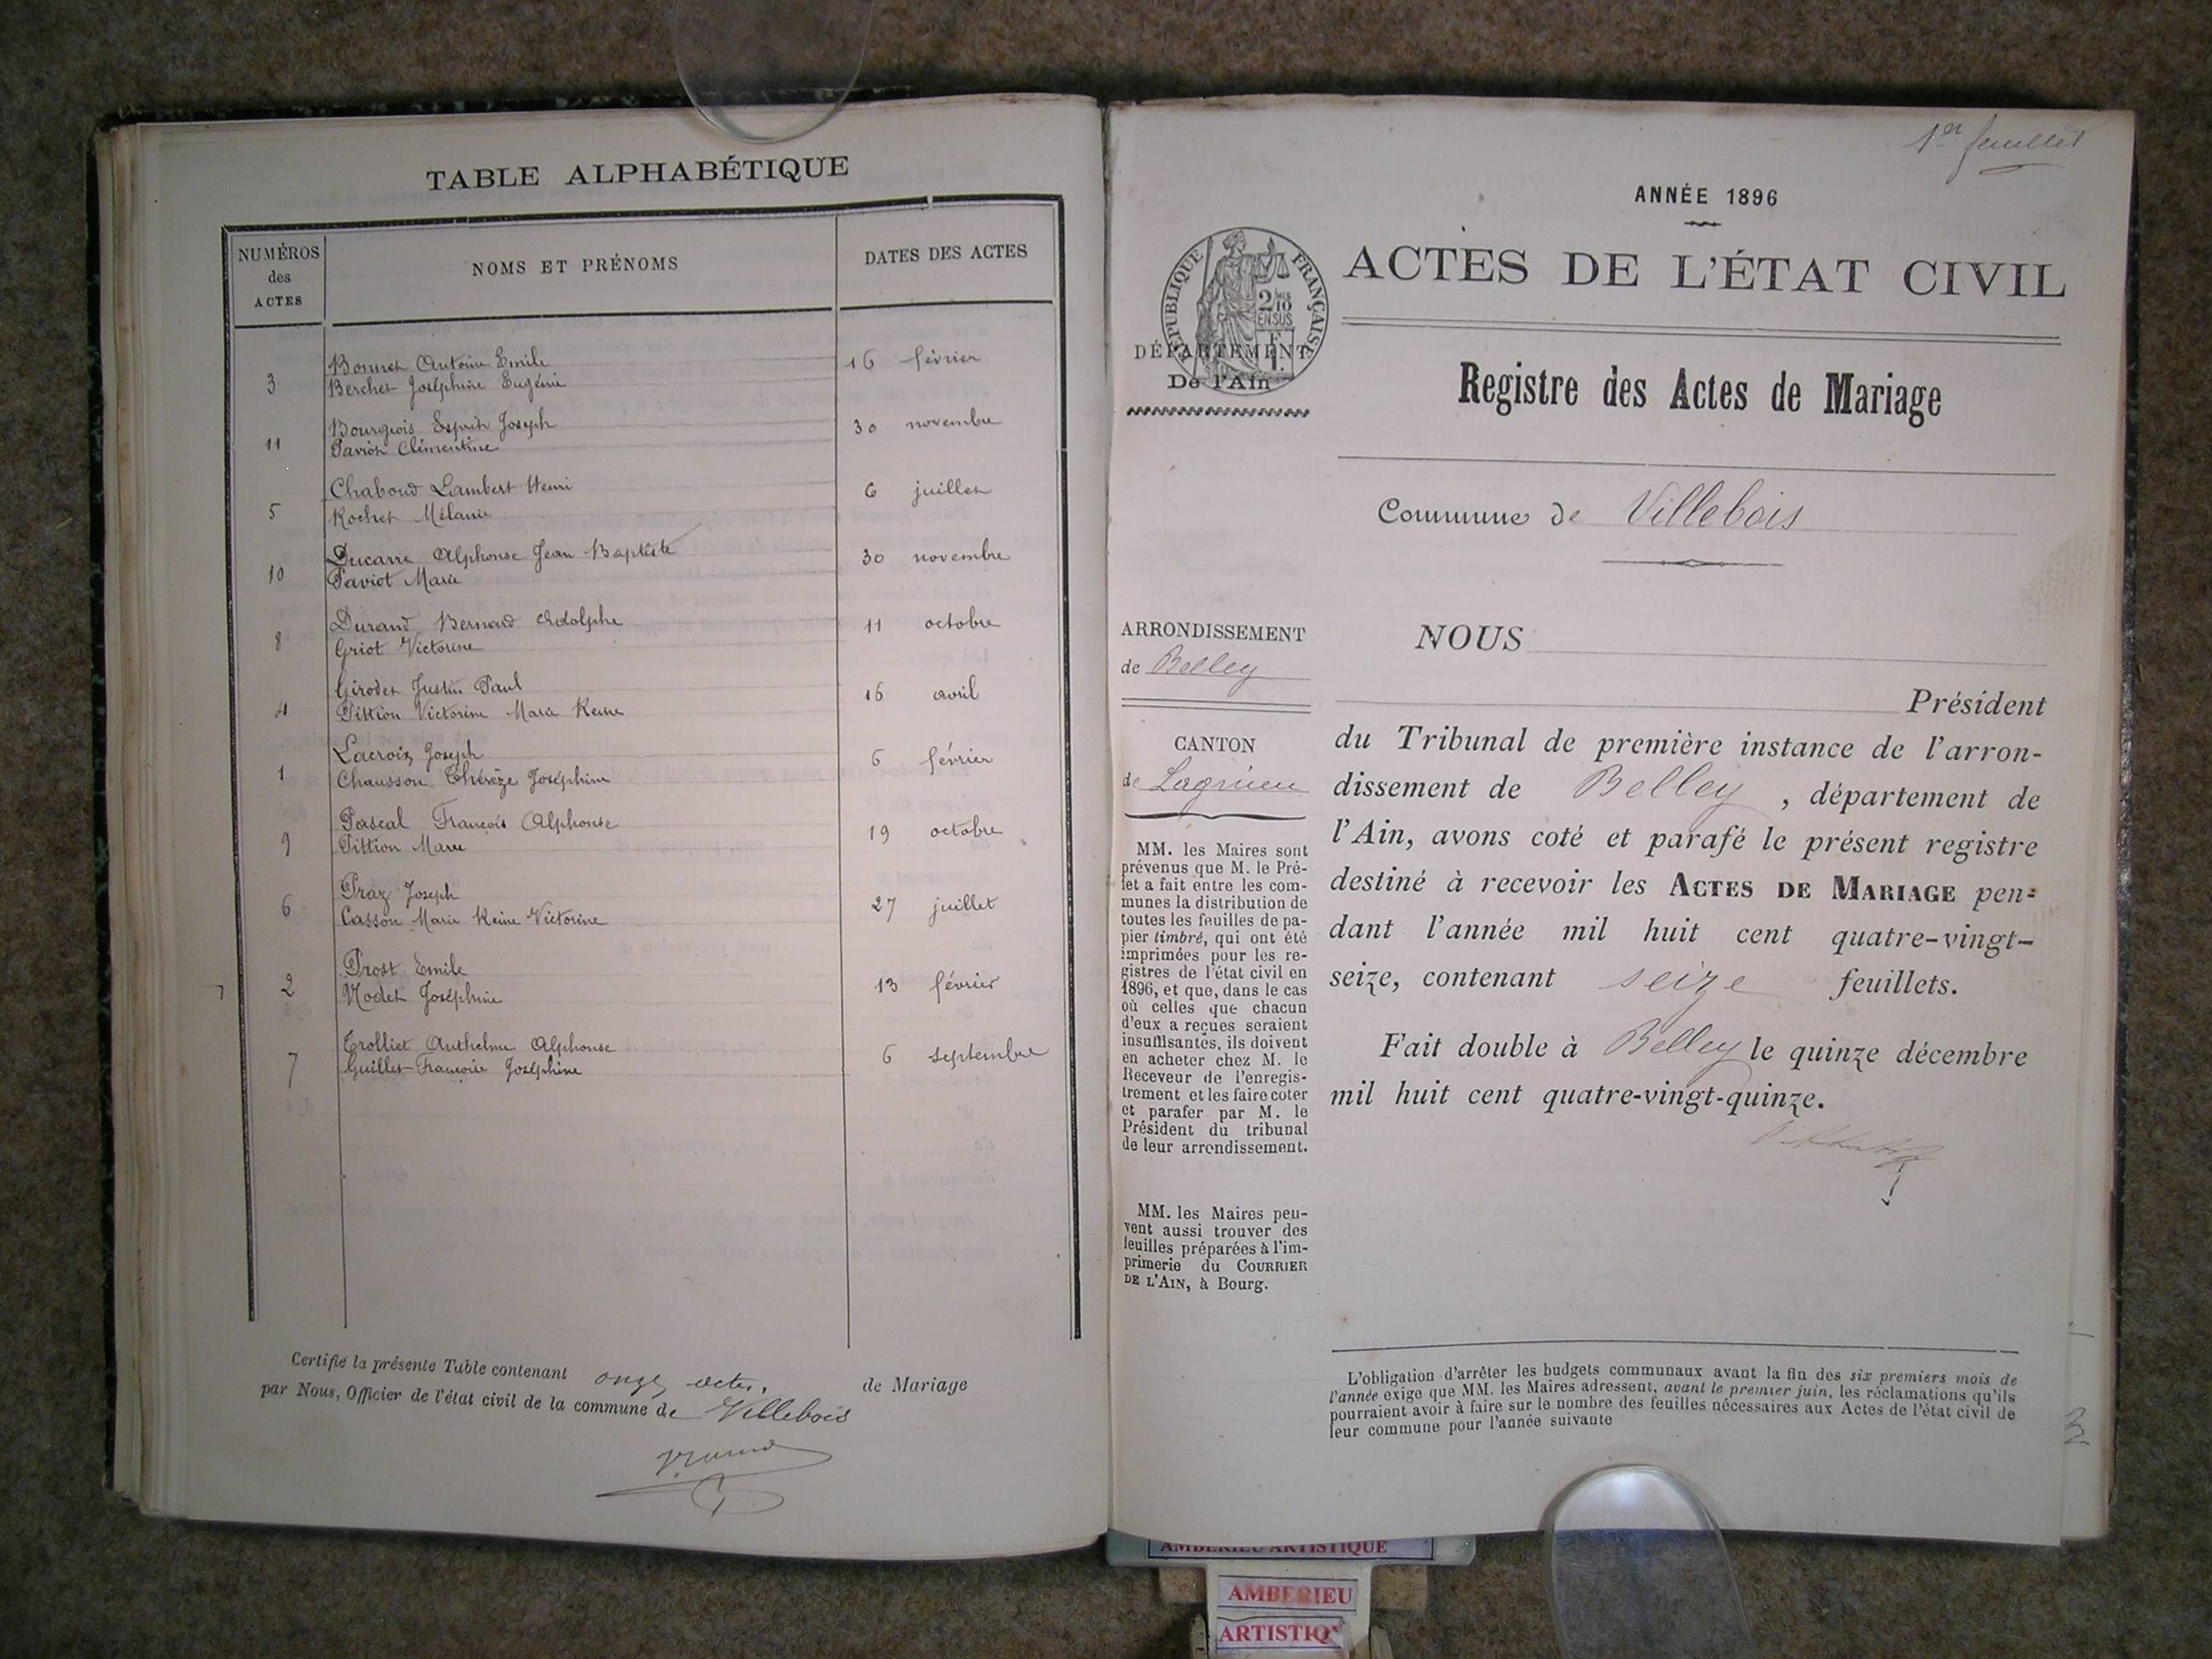 TABLE ALPHABÉTIQUE
NUMÉROS
des
ACTES
NOMS ET PRÉNOMS
DATES DES ACTES
Bonnet Antoine Emile
3 Berchet Joséphine Eugénie
16 février
Bourgeois Esprit Joseph
11 Paviot Clémentine
30 novembre
Chaboud Lambert Henri
5 Rochet Mélanie
6 juillet
Ducarre Alphonse Jean-Baptiste
10 Paviot Marie
30 novembre
Durand Bernard Adolphe
8 Griot Victorine
11 octobre
Girodet Justin Paul
4 Pittion Victorine Marie Reine
16 avril
Lacroix Joseph
1 Chausson Thérèze Joséphine
6 février
Pascal François Alphonse
9 Pittion Marie
19 octobre
Praz Joseph
6 Casson Marie Reine Victorine
27 juillet
Prost Emile
2 Nodet Joséphine
13 février
Trolliet Anthelme Alphonse
7 Guillet Françoise Joséphine
6 septembre
Certifié la présente Table contenant onze actes, de Mariage
par Nous, Officier de l'état civil de la commune de Villebois
1er feuillet
ANNÉE 1896
ACTES DE L'ÉTAT CIVIL
RÉPUBLIQUE FRANÇAISE
2/10
EN SUS
DÉPARTEMENT
De l'Ain
Registre des Actes de Mariage
Commune de Villebois
ARRONDISSEMENT
de Belley
CANTON
de Lagnieu
MM. les Maires sont
prévenus que M. le Pré-
fet a fait entre les com-
munes la distribution de
toutes les feuilles de pa-
pier timbré, qui ont été
imprimées pour les re-
gistres de l'état civil en
1896, et que, dans le cas
où celles que chacun
d'eux a reçues seraient
insuffisantes, ils doivent
en acheter chez M. le
Receveur de l'enregis-
trement et les faire coter
et parafer par M. le
Président du tribunal
de leur arrondissement.
MM. les Maires peu-
vent aussi trouver des
feuilles préparées à l'im-
primerie du COURRIER
DE L'AIN, à Bourg.
NOUS
Président
du Tribunal de première instance de l'arron-
dissement de Belley, département de
l'Ain, avons coté et parafé le présent registre
destiné à recevoir les ACTES DE MARIAGE pen-
dant l'année mil huit cent quatre-vingt-
seize, contenant seize feuillets.
Fait double à Belley le quinze décembre
mil huit cent quatre-vingt-quinze.
L'obligation d'arrêter les budgets communaux avant la fin des six premiers mois de
l'année exige que MM. les Maires adressent, avant le premier juin, les réclamations qu'ils
pourraient avoir à faire sur le nombre des feuilles nécessaires aux Actes de l'état civil de
leur commune pour l'année suivante
AMBERIEU ARTISTIQUE
AMBERIEU
ARTISTIQ